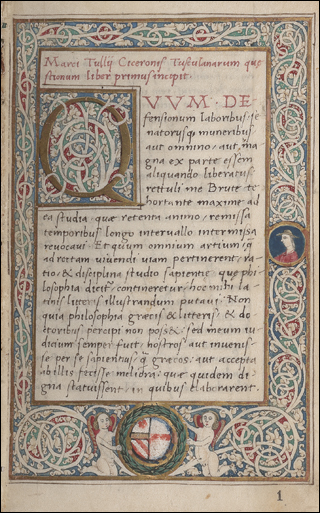 Marci Tullij Ciceronis Tusculanarum que
stionum liber primus incipit.
QVVM · DE
fensionum laboribus, se
natorijsq muneribus
aut omnino, aut ma
gna ex parte essem
aliquando liberatus
rettuli me Brute te
hortante maxime ad
ea studia, que retenta animo, remissa
temporibus longo interuallo intermissa
reuocaui. Et quum omnium artium, q
ad rectam uiuendi uiam pertinerent, ra
tio, & disciplina studio sapientie, que phi
losophia dicit, contineretur, hoc mihi la
tinis litteris illustrandum putaui. Non
quia philosophia grecis & litteris, & do
ctoribus percipi non poss&, sed meum iu
dicium semper fuit, nostros aut inuenis
se per se sapientius q grecos, aut accepta
ab illis fecisse meliora, que quidem di
gna statuissent, in quibus elaborarent.
1